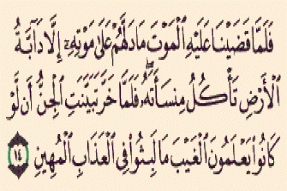 فَلَمَّا قَضَيْنَا عَلَيْهِ الْمَوْتَ مَا دَلَّهُمْ عَلَىٰ مَوْتِهِۦٓ إِلَّا دَآبَّةُ
الْأَرْضِ تَأْكُلُ مِنسَأَتَهُۥۖ فَلَمَّا خَرَّ تَبَيَّنَتِ الْجِنُّ أَن لَّوْ
كَانُوا۟ يَعْلَمُونَ الْغَيْبَ مَا لَبِثُوا۟ فِي الْعَذَابِ الْمُهِينِ ١٤